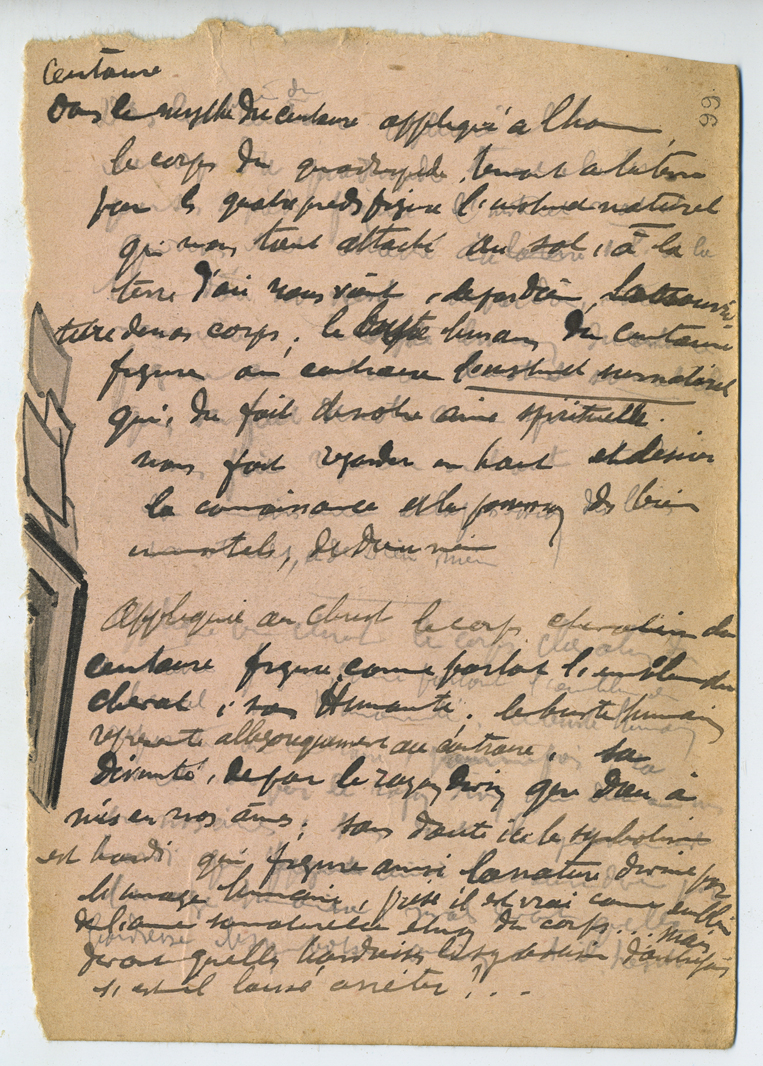 Centaure
Dans le mythe du centaure appliqué a lhom
le corps du quadrupède, tenant a la terre
par les quatre pieds figure l'instinct naturel
qui nous tient attaché au sol, à la
terre d'où nous vient, de par Dieu, la nourri
ture de nos corps; le buste humain du centaure
figure au contraire l'instinct surnaturel
qui, du fait de notre âme spirituelle.
nous fait regarder en haut et désirer
la connaissance et la des biens
immortels, de Dieu même
Appliqué au Christ le corps chevalin du
centaure figure, comme partout l'emblème du
cheval, son Humanité; le buste humain
représente allégoriquement au contraire, sa
Divinité, de par le rayon divin que Dieu à
mis en nos âmes; sans doute ici le symbolisme
est hardi qui figure ainsi la nature divine par
l'image humaine, prise il est vrai comme emblème
de l'âme et du corps... mais
devant quelles hardiesses le symbolisme d'autrefois
s'est il laissé arrêter! ...
66